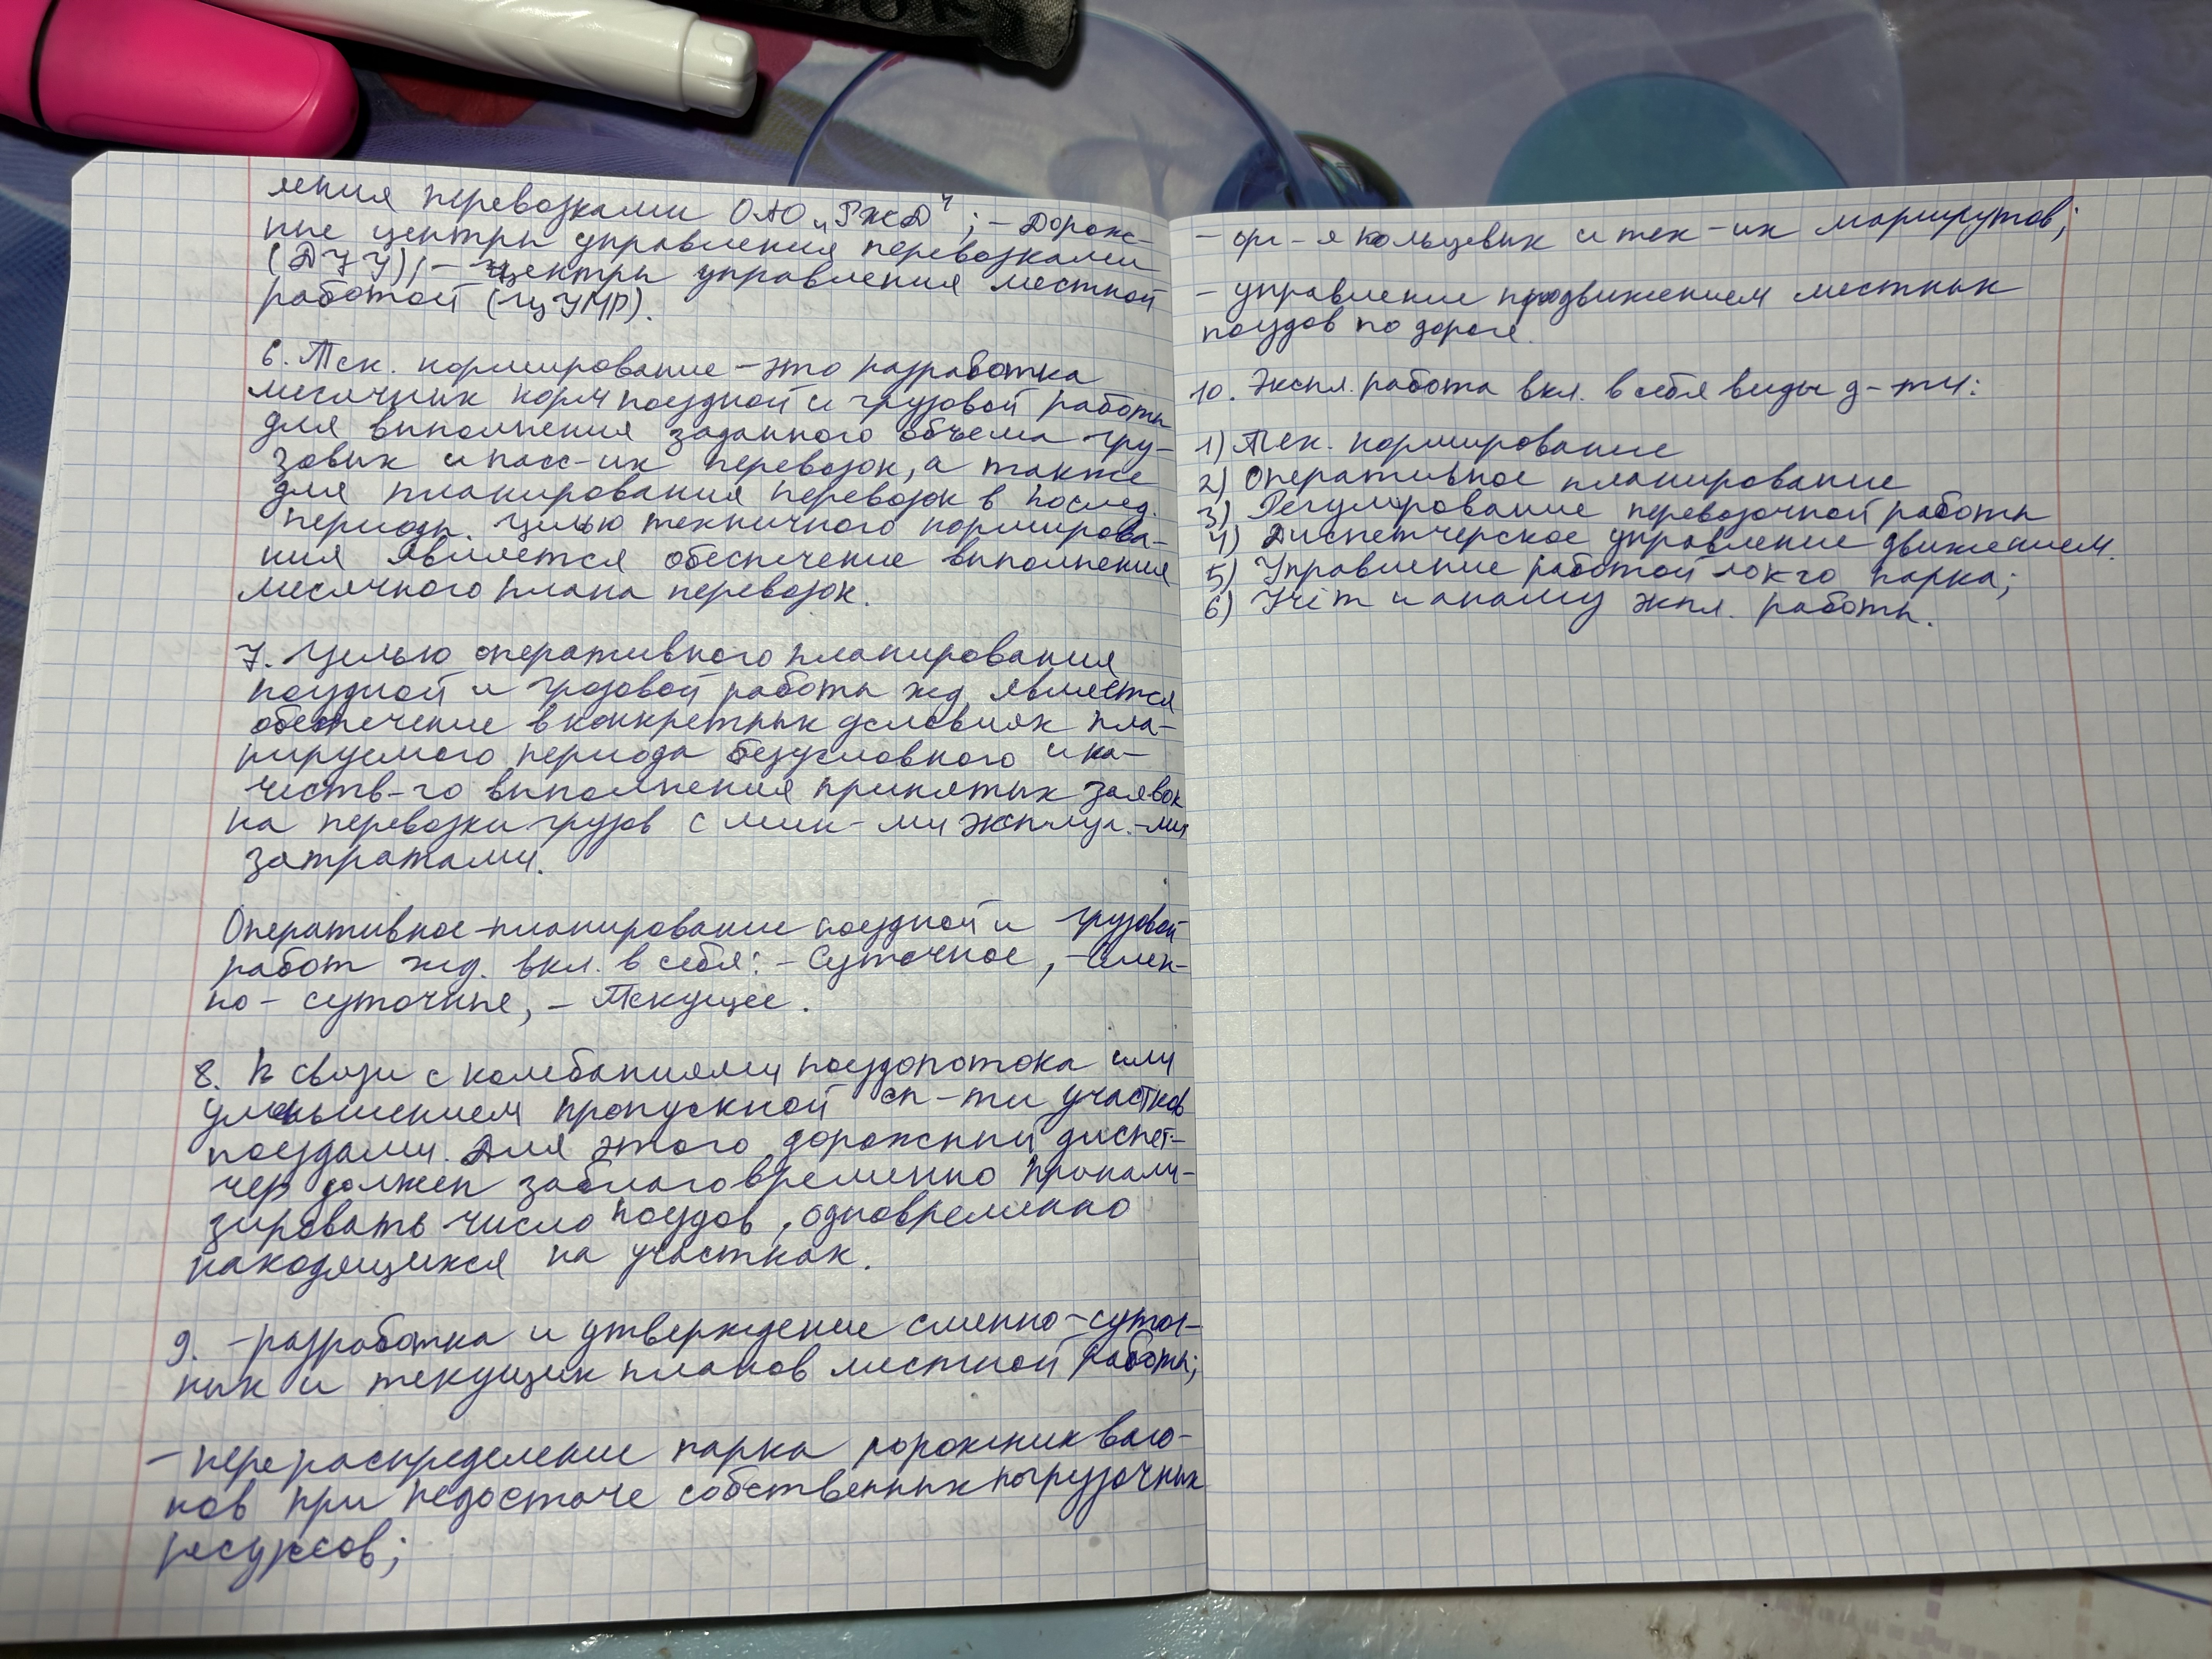 ления перевозками ОАО „РЖД“; – Дорож-
ные центры управления перевозками
(ДЦУ); – центры управления местной
работой (ЦУМР).
6. Тех. нормирование – это разработка
месячных норм поездной и грузовой работы
для выполнения заданного объема гру-
зовых и пасс-их перевозок, а также
для планирования перевозок в послед.
периоды. Целью техничного нормирова-
ния является обеспечение выполнения
месячного плана перевозок.
7. Целью оперативного планирования
поездной и грузовой работы жд является
обеспечение в конкретных условиях пла-
нируемого периода безусловного и ка-
честв-го выполнения принятых заявок
на перевозки грузов с мин-ми эксплуа.-ми
затратами.
Оперативное планирование поездной и грузовой
работ жд. вкл. в себя: – Суточное, – Смен-
но-суточные, – Текущее.
8. В связи с колебаниями поездопотока или
уменьшением пропускной сп-ти участков
поездами. Для этого дорожный диспет-
чер должен заблаговременно проанали-
зировать число поездов, одновременно
находящихся на участках.
9. – разработка и утверждение сменно-суточ-
ных и текущих планов местной работы;
– перераспределение парка порожних ваго-
нов при недостаче собственных погрузочных
ресурсов;
– орг-я кольцевых и тех-их маршрутов;
– управление продвижением местных
поездов по дороге.
10. Экспл. работа вкл. в себя виды д-ти:
1) Тех. нормирование
2) Оперативное планирование
3) Регулирование перевозочной работы
4) Диспетчерское управление движением.
5) Управление работой лок-го парка;
6) Учёт и анализ экпл. работы.